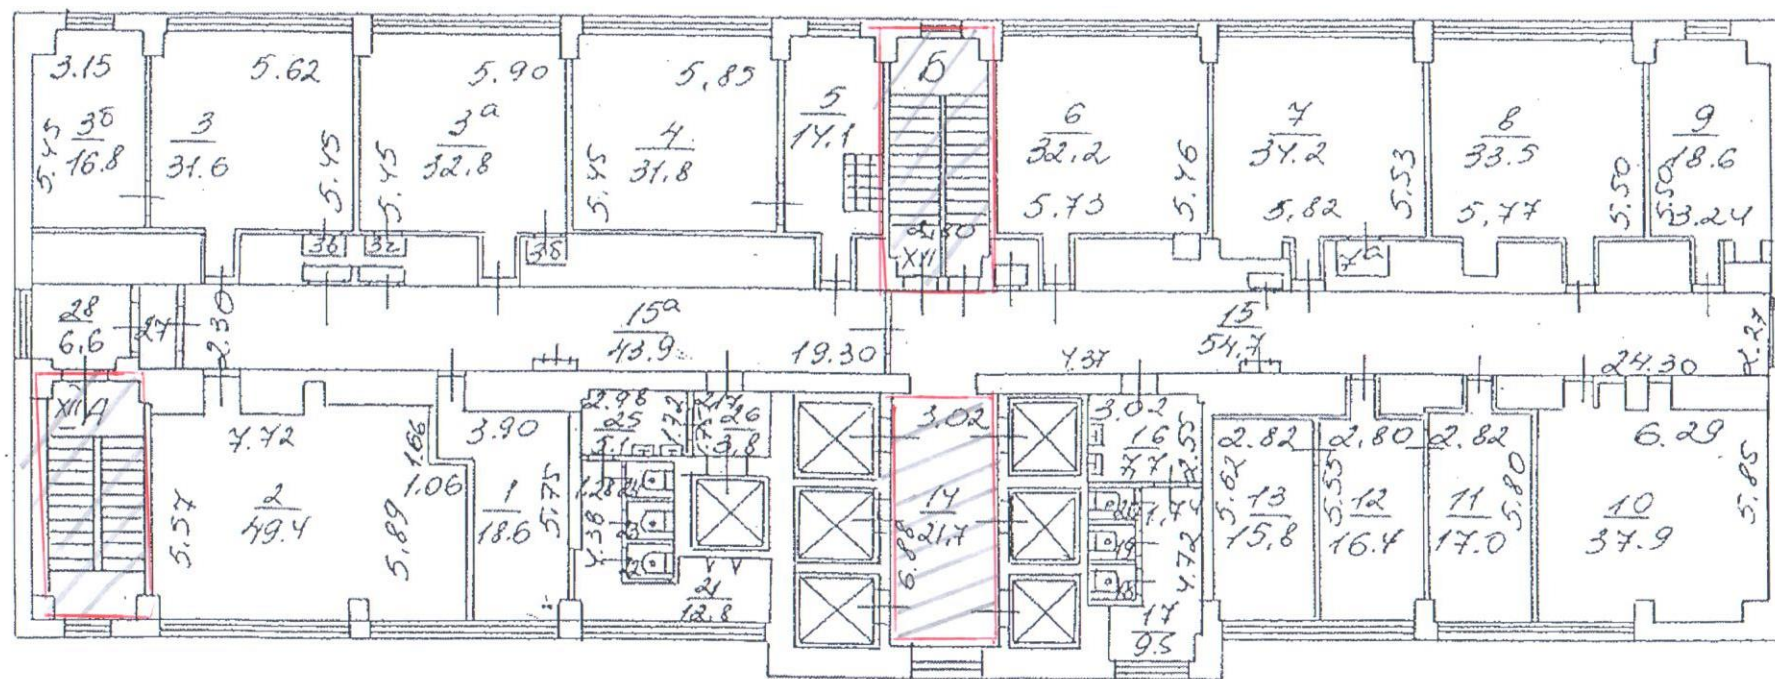 3.15
5.62
5.90
5,85
Б
5.45
3б
16.8
3
31.6
5.45
5.45
3а
32,8
5.45
4
31,8
5
14.1
6
32,2
5.73
5.46
7
34.2
5,82
5.53
8
33.5
5,77
5.50
9
18.6
5.50
3.24
3в
3г
3д
2,80
XIII
7а
28
6,6
27
2.30
15а
43.9
19.30
15
54,7
4.37
24.30
2.27
XII А
7.72
1.66
1.06
5.57
2
49.4
5.89
3.90
1
18.6
5.75
2.98
25
5.1
1.72
2,17
26
3,8
1.28
24
23
22
4.38
21
12,8
3.02
14
21,7
6.88
3.02
16
7,7
2.55
20
1,74
19
18
4.72
17
9.5
2.82
5.62
13
15,8
2,80
5.55
12
16.4
2.82
11
17.0
5.80
6.29
10
37.9
5.85